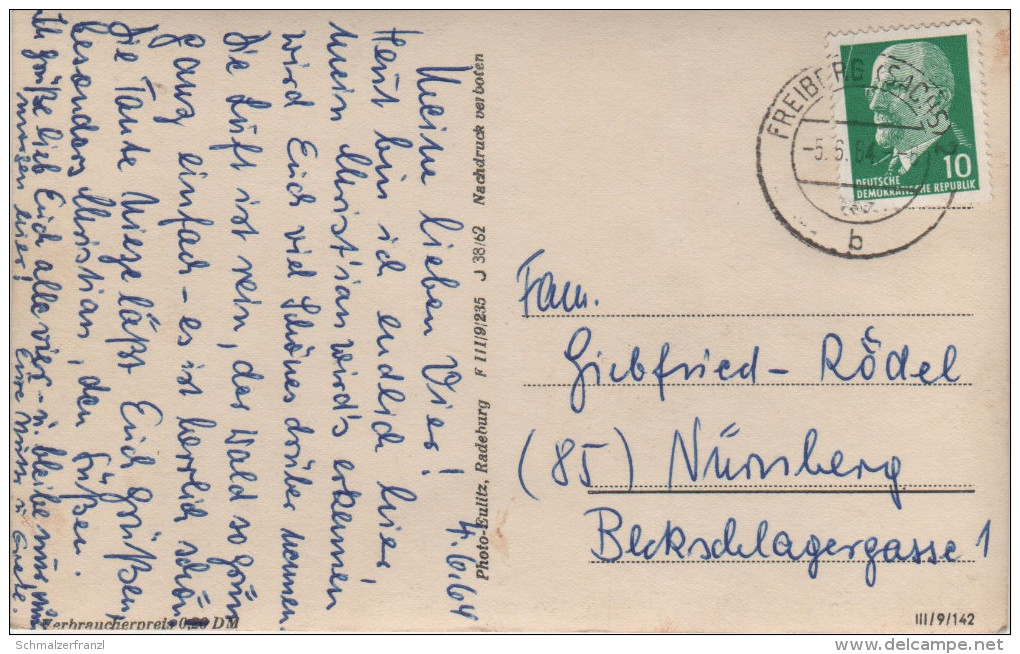 4.6.64
Meine lieben Vier!
Heut bin ich endlich hier,
mein Christian wird's erkennen
wird Euch viel Schönes drüber nennen.
Die Luft ist rein, der Wald so grün
ganz einfach - es ist herrlich schön
Die Tante Mieze läßt Euch grüßen,
besonders Christian, den Süßen.
Ich grüße lieb Euch alle vier - u. bleibe nur
immer Eure
Photo-Eulitz, Radeburg F III/9/235 J 38/62 Nachdruck verboten
Verbraucherpreis 0,20 DM
FREIBERG (SACHS) 2
-5.6.64
b
10
DEUTSCHE
DEMOKRATISCHE REPUBLIK
Fam.
Giebfried - Rödel
(85) Nürnberg
Beckschlagergasse 1
III/9/142
Schmalzerfranzl
delcampe.net